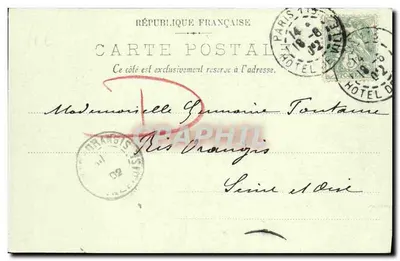 RÉPUBLIQUE FRANÇAISE
CARTE POSTALE
Ce côté est exclusivement réservé à l'adresse.
PARIS
HOTEL DE VILLE
Mademoiselle Germaine Fontaine
Ris Orangis
Seine et Oise
D